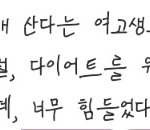 산다는 여고생
, 다이어트를
, 너무 힘들었다